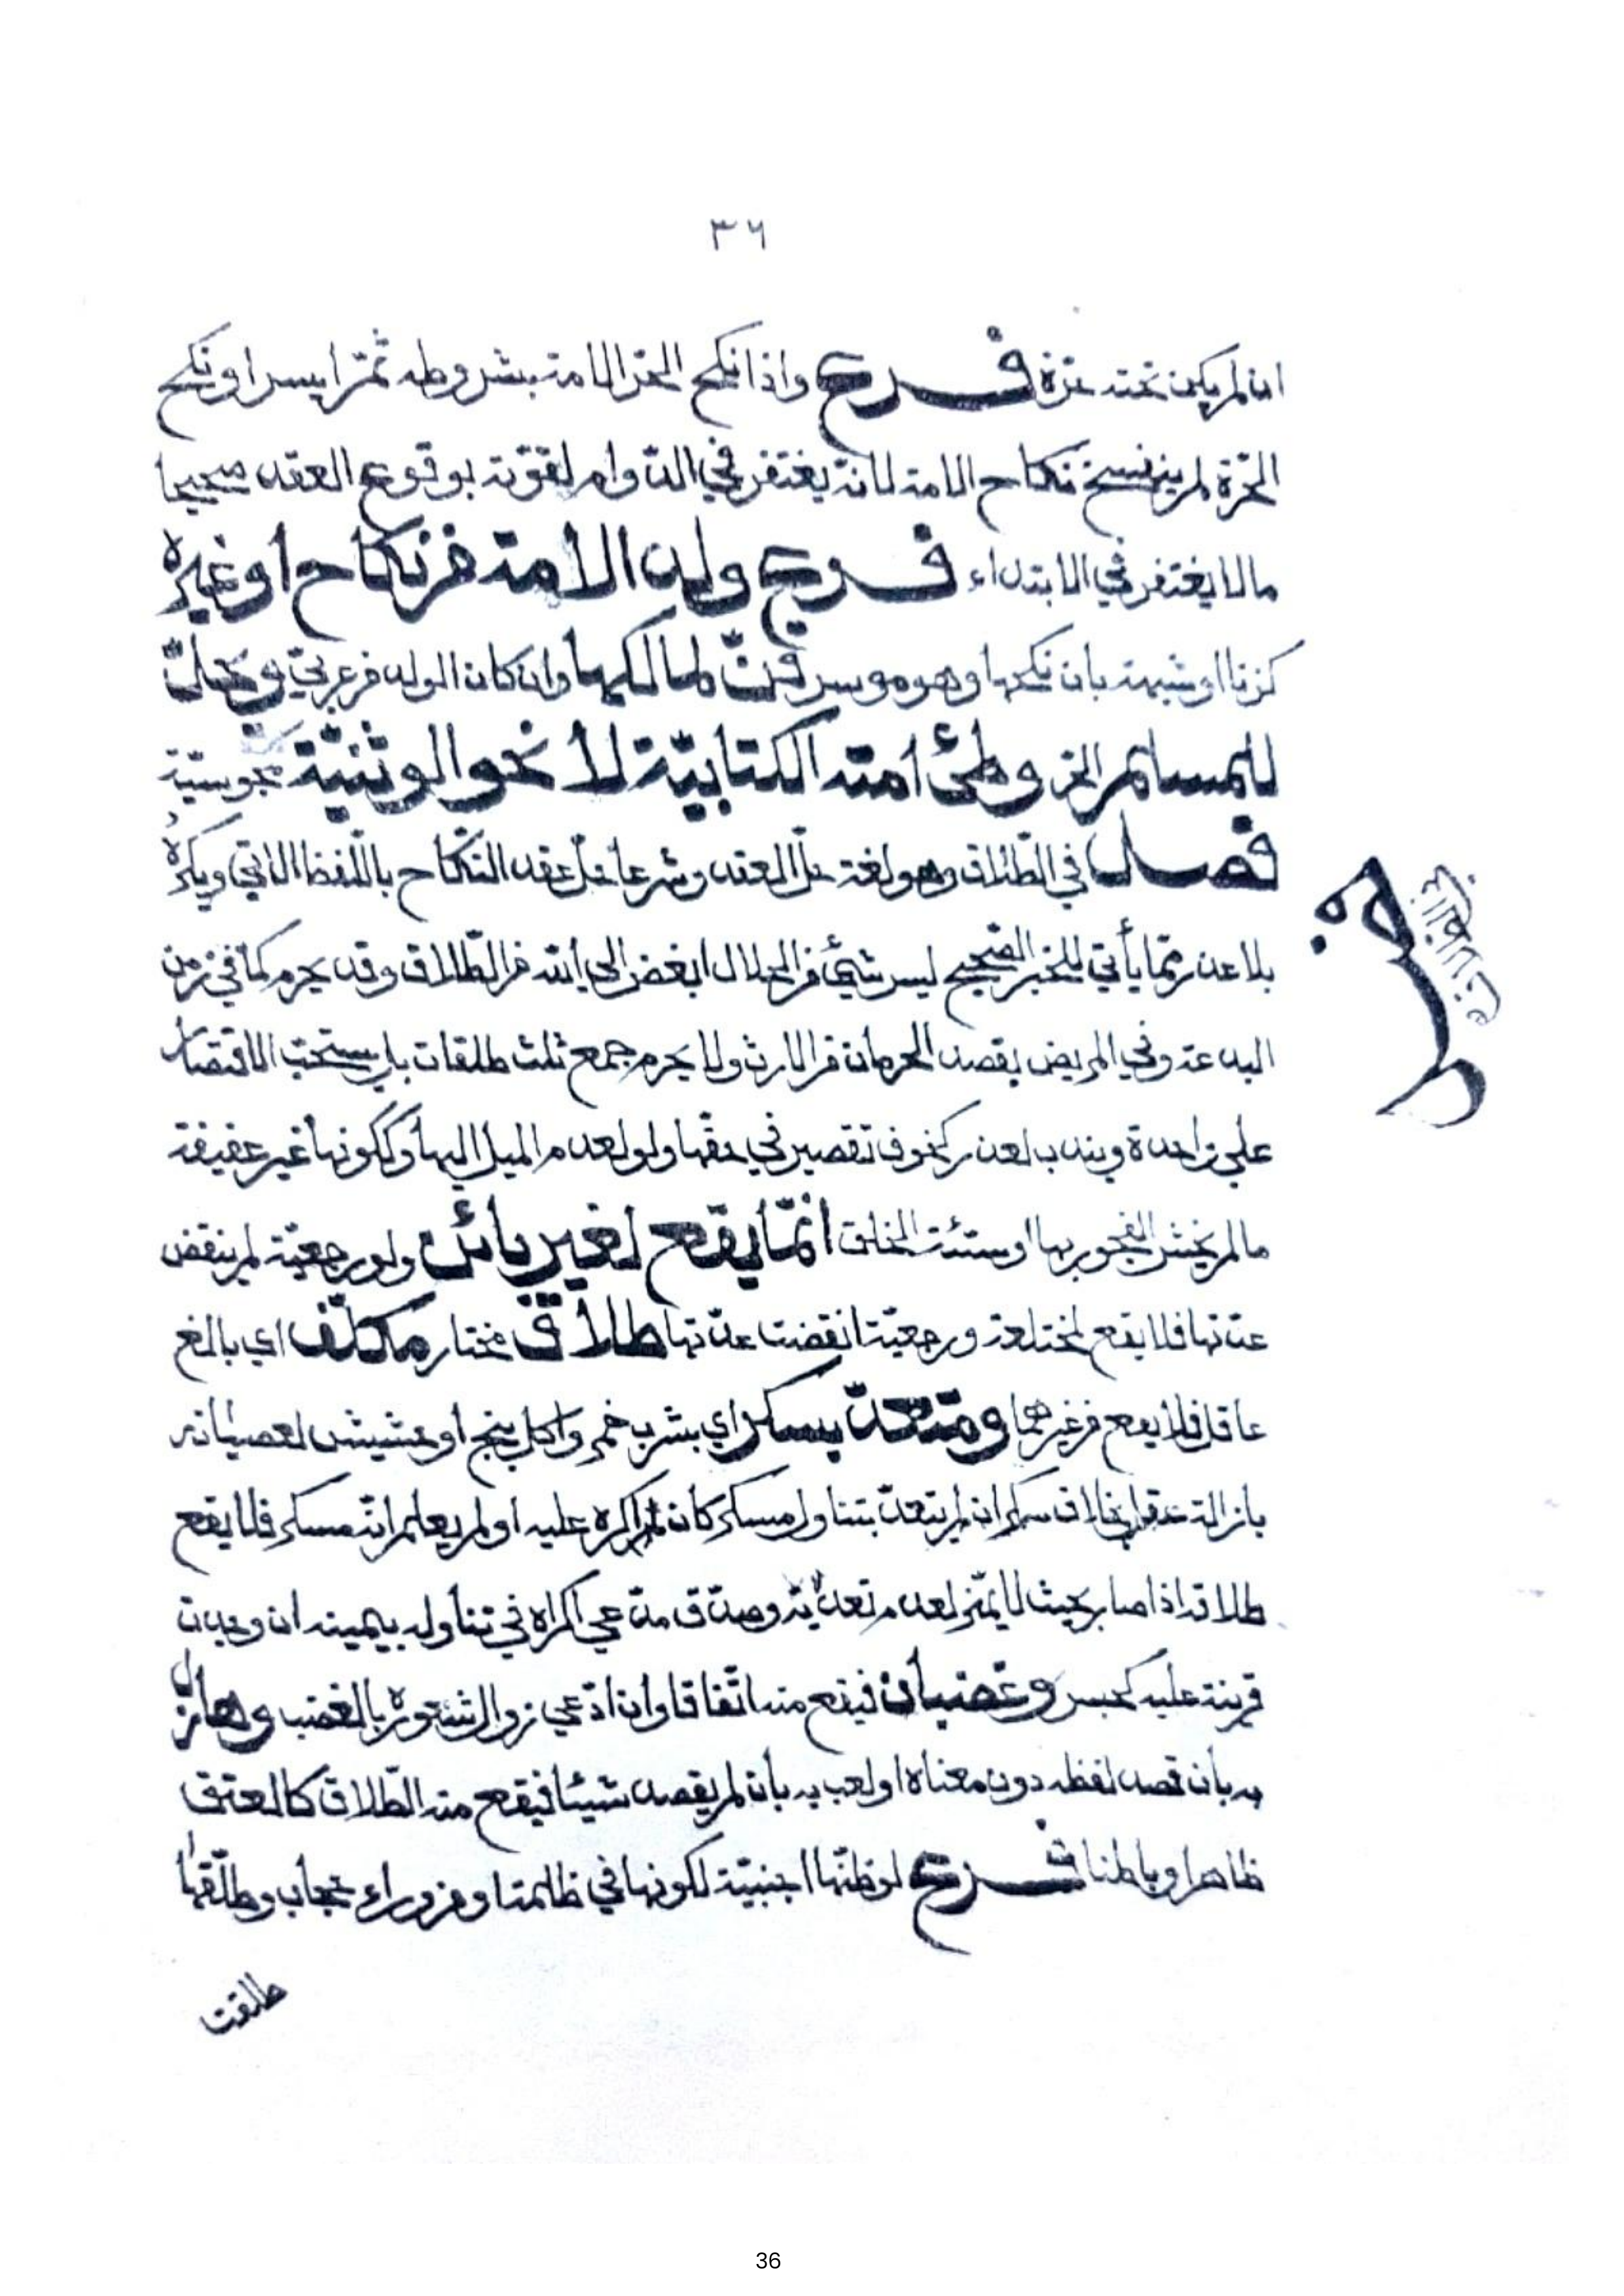 ٣٦
ان لم يكن تحته حرّة فرع واذا نكح الحرّ الامة بشروطه ثمّ ايسر او نكح
الحرّة لم ينفسخ نكاح الامة لانه يغتفر في الدّوام لقوّته بوقوع العقد صحيحا
مالا يغتفر في الابتداء فرع ولد الامة من نكاح او غيره
كزنا او شبهة بان نكحها وهو موسر قنّ لمالكها وان كان الولد من عربيّ ويحلّ
للمسلم الحرّ وطئ امته الكتابيّة لا نحو الوثنيّة مجوسيّة
فصل في الطّلاق وهو لغة حلّ العقد وشرعا حلّ عقد النّكاح باللّفظ الاتي ويكره
بلا عذر ممّا يأتي للخبر الصّحيح ليس شيئ من الحلال ابغض الى الله من الطّلاق وقد يحرم كما في زمن
البدعة وفي المريض بقصد الحرمان من الارث ولا يحرم جمع ثلث طلقات بل يستحبّ الاقتصار
على واحدة ويندب لعذر كخوف تقصير في حقّها ولو لعدم الميل اليها وككونها غير عفيفة
مالم يخش الفجور بها او سيّئة الخلق انّما يقع لغير بائن ولو رجعيّة لم ينقض
عدّتها فلا يقع لمختلعة ورجعيّة انقضت عدّتها طلاق مختار مكلّف اي بالغ
عاقل فلا يقع من غيرهما ومتعدّ بسكر اي بشرب خمر واكل بنج او حشيش لعصيانه
بازالة عقله بخلاف سكران لم يتعدّ بتناول مسكر كان اكره عليه او لم يعلم انّه مسكر فلا يقع
طلاقه اذا صار بحيث لا يميّز لعدم تعدّيه وصدّق مدّعي اكراه في تناوله بيمينه ان وجدت
قرينة عليه كحبس وغضبان فيقع منه اتّفاقا وان ادّعي زوال شعوره بالغضب وهازل
به بان قصد لفظه دون معناه او لعب به بان لم يقصد شيئا فيقع منه الطّلاق كالعتق
ظاهرا وباطنا فرع لو ظنّها اجنبيّة لكونها في ظلمة او من وراء حجاب وطلّقها
طلقت